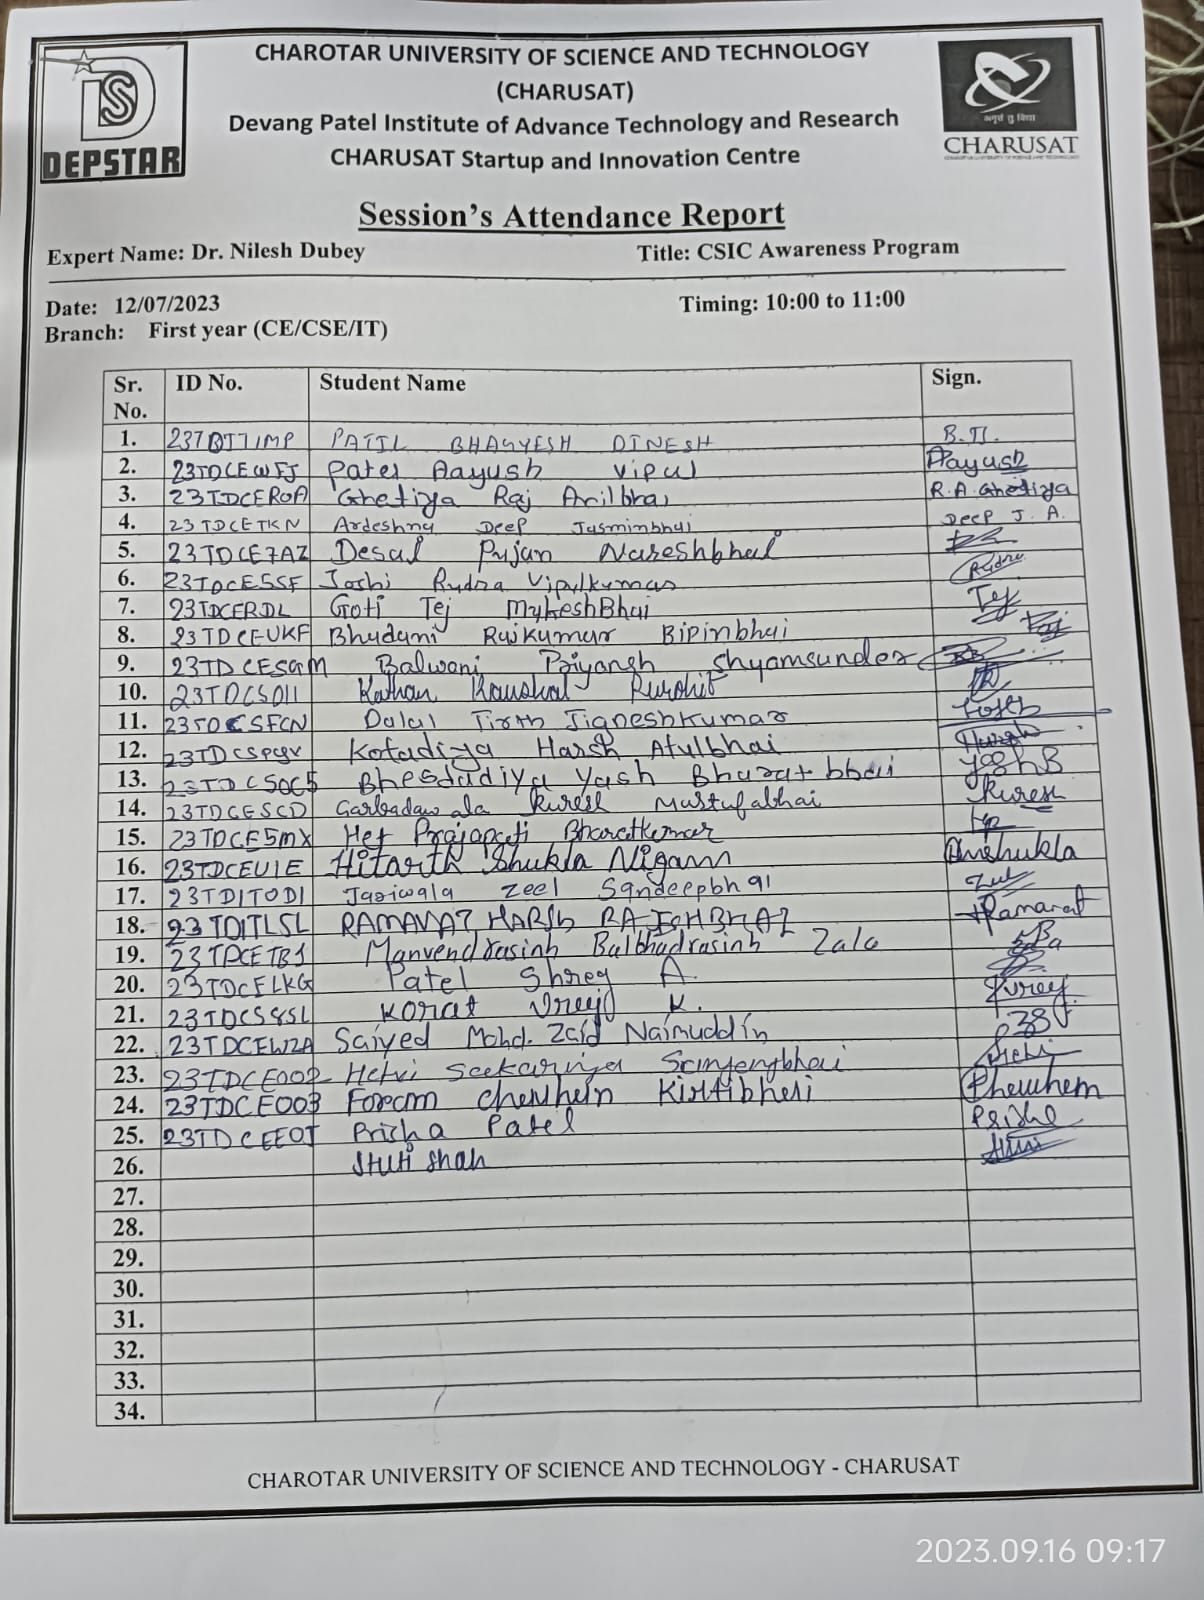 DEPSTAR
CHAROTAR UNIVERSITY OF SCIENCE AND TECHNOLOGY
(CHARUSAT)
Devang Patel Institute of Advance Technology and Research
CHARUSAT Startup and Innovation Centre
अमृतं तु विद्या
CHARUSAT
Session's Attendance Report
Expert Name: Dr. Nilesh Dubey Title: CSIC Awareness Program
Date: 12/07/2023 Timing: 10:00 to 11:00
Branch: First year (CE/CSE/IT)
Sr. No. ID No. Student Name Sign.
1. PATIL BHAGYESH DINESH
2. 23TDCEWFJ Patel Aayush Vipul Aayush
3. 23TDCEROA Ghetiya Raj Anilbhai R.A.Ghetiya
4. 23TDCETKN Ardeshna Deep Jasminbhai Deep J. A.
5. 23TDCE7AZ Desai Pujan Nareshbhai
6. 23TDCESSF Joshi Rudra Vipulkumar Rudra
7. 23TDCERDL Goti Tej MukeshBhai Tej
8. 23TDCEUKF Bhudani Rajkumar Bipinbhai Raj
9. 23TDCESGM Balwani Priyansh Shyamsunder
10. 23TDCS011 Kathan Kaushal Purohit
11. Dalal Tirth Jigneshkumar
12. Kotadiya Harsh Atulbhai Harsh
13. 23TDCSOC5 Bhesdadiya Yash Bharatbhai Yash B
14. 23TDCESCD Garbadawala Kuresh Mustufabhai Kuresh
15. 23TDCE5MX Het Prajapati Bharatkumar
16. 23TDCEU1E Hitarth Shukla Nigam
17. 23TDITODI Jariwala Zeel Sandeepbhai Zeel
18. 23TDITLSL RAMAVAT HARSH RAJESHBHAI HRamavat
19. 23TDCETBJ Manvendrasinh Balbhadrasinh Zala
20. 23TDCELKG Patel Shrey A.
21. 23TDCS8SL Korat Vraj K.
22. 23TDCEWZA Saiyed Mohd. Zaid Naimuddin
23. 23TDCE002 Helvi
24. 23TDCE003 Foram
25. 23TDCEEOJ Prisha Patel Prisha
26. Stuti Shah
27.
28.
29.
30.
31.
32.
33.
34.
CHAROTAR UNIVERSITY OF SCIENCE AND TECHNOLOGY - CHARUSAT
2023.09.16 09:17